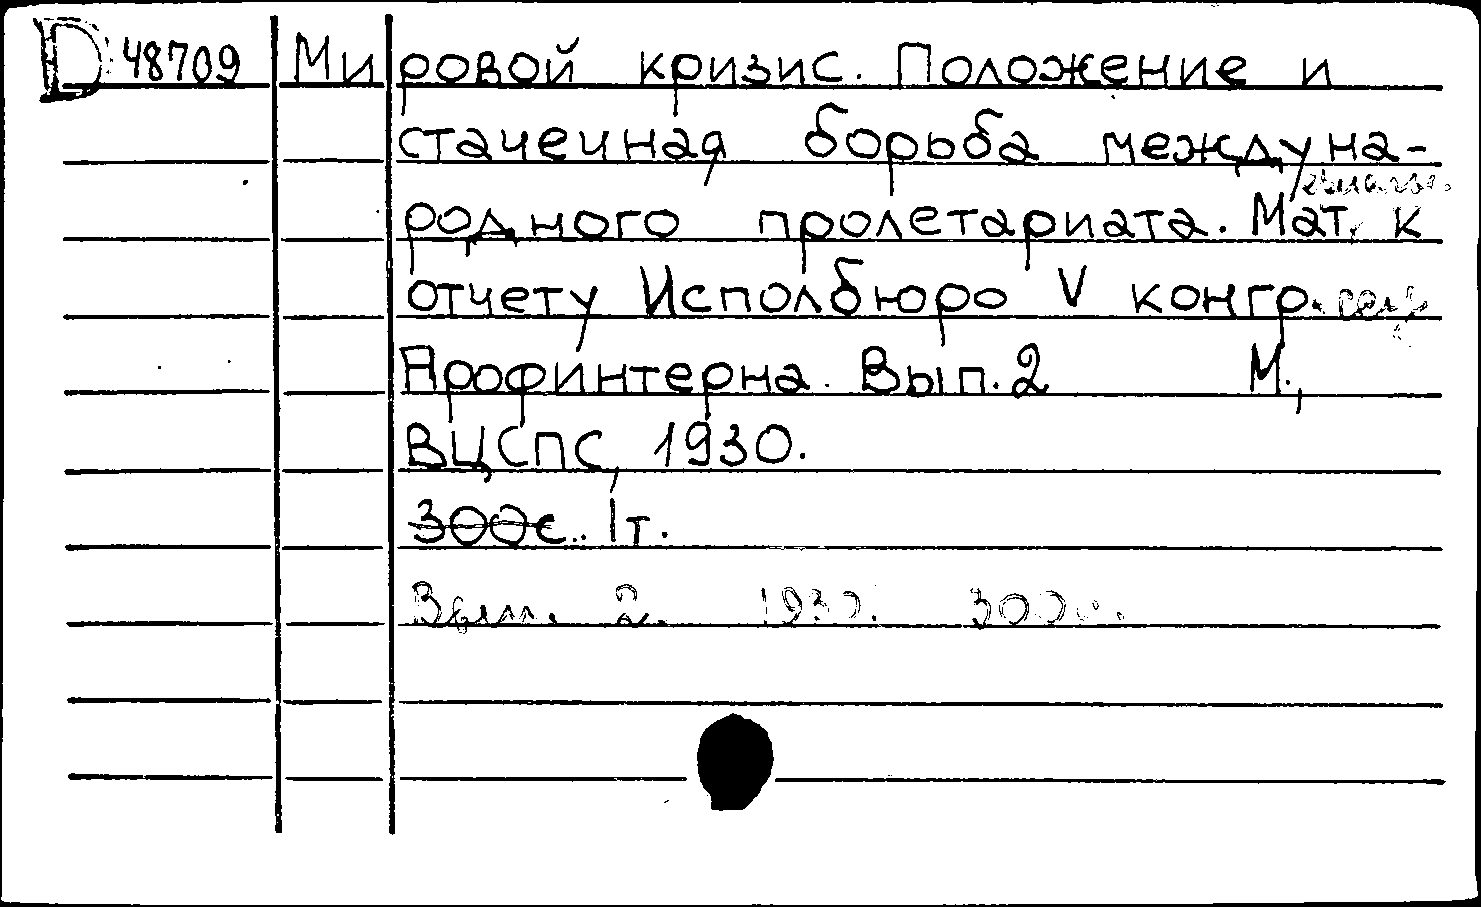 D 48709 Мировой кризис. Положение и
стачечная борьба междуна-
родного пролетариата. Мат. к
отчету Исполбюро V конгр.
Профинтерна. Вып. 2 М.,
ВЦСПС, 1930.
300с. 1т.
Вып. 2. 1930. 300с.